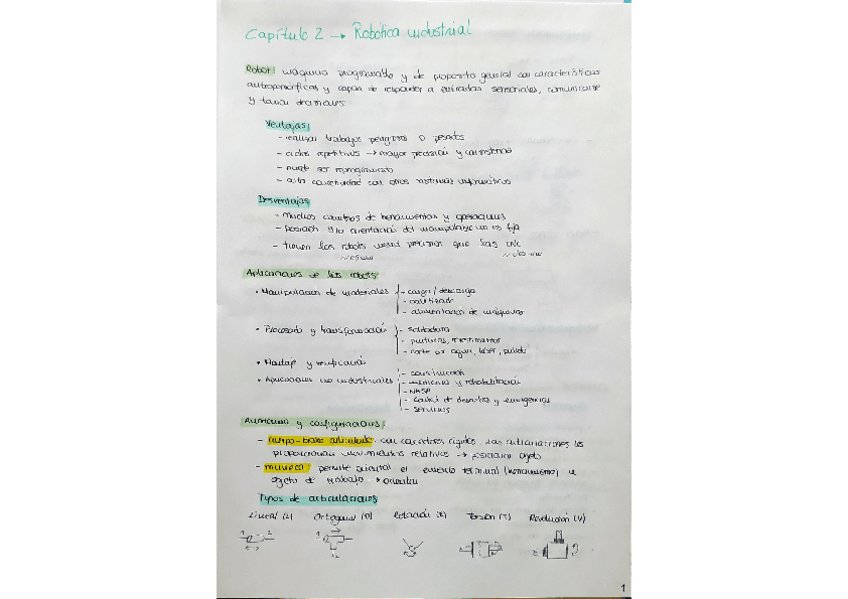 Capítulo 2 → Robótica industrial
Robot: máquina programable y de proposito general con características
antropomórficas y capaz de responder a entradas sensoriales, comunicarse
y tomar decisiones
Ventajas:
- realizar trabajos peligrosos o pesados
- ciclos repetitivos → mayor precisión y consistencia
- puede ser reprogramado
- alta conectividad con otros sistemas informáticos
Desventajas:
- muchos cambios de herramientas y operaciones
- posición y/o orientación del manipulador no es fija
- tienen los robots menor precision que las
Aplicaciones de los robots:
• Manipulación de materiales - carga / descarga
- paletizado
- alimentación de máquinas
• Procesado y transformación - soldadura
- pinturas,
- corte por agua, láser, pulido
• Montaje y verificación
• Aplicaciones no industriales - construcción
- medicina y rehabilitación
- NASA
- control de desastres y emergencias
- servicios
Anatomía y configuraciones:
- cuerpo-brazo articulado: con conectores rígidos. Las articulaciones les
proporcionan movimientos relativos → posicionar objeto
- muñeca: permite orientar el elemento terminal (herramienta) u
objeto de trabajo → orientar
Tipos de articulaciones
Lineal (L) Ortogonal (O) Rotación (R) Torsión (T) Revolución (V)
1